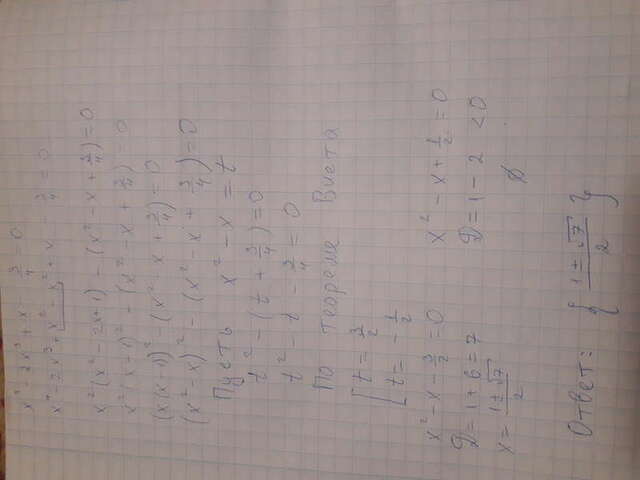 x⁴ - 2x³ + x - 3/4 = 0
x⁴ - 2x³ + x² - x² + x - 3/4 = 0
x²(x² - 2x + 1) - (x² - x + 3/4) = 0
x²(x - 1)² - (x² - x + 3/4) = 0
(x(x - 1))² - (x² - x + 3/4) = 0
(x² - x)² - (x² - x + 3/4) = 0
Пусть x² - x = t
t² - (t + 3/4) = 0
t² - t - 3/4 = 0
По теореме Виета
[ t = 3/2
t = - 1/2
x² - x - 3/2 = 0
D = 1 + 6 = 7
x = (1 ± √7)/2
x² - x + 1/2 = 0
D = 1 - 2 < 0
∅
Ответ: { (1 ± √7)/2 }